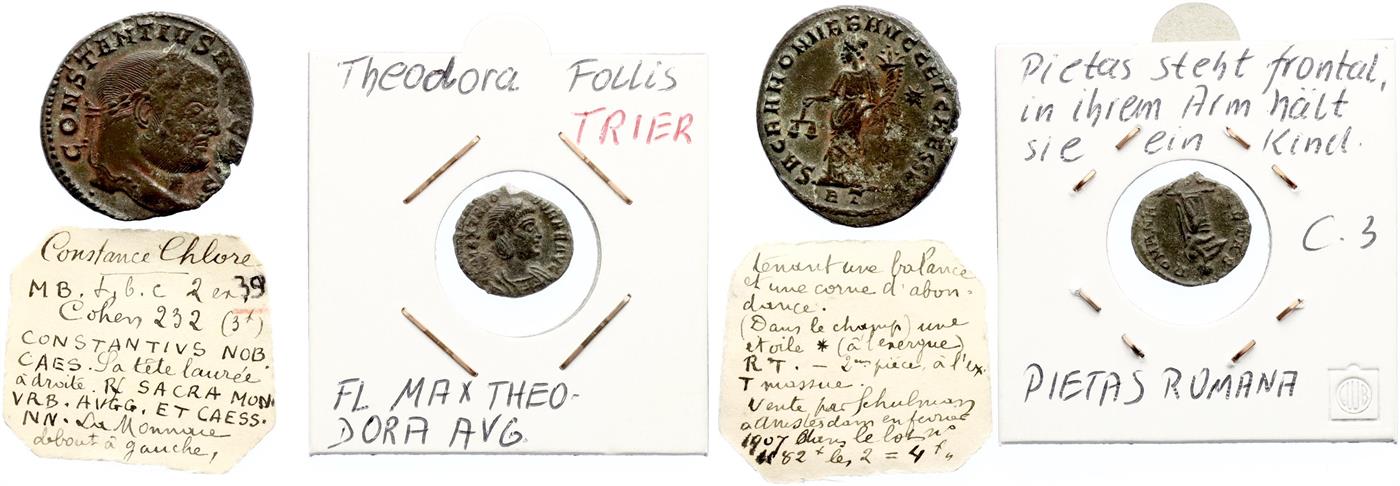 CONSTANTIVS
Constance Chlore
MB. F.b.c 2 ex 39
Cohen 232 (3f)
CONSTANTIVS NOB.
CAES. Sa tête laurée
à droite. R/ SACRA MON.
VRB. AVGG. ET CAESS.
NN. La Monnaie
debout à gauche,
Theodora Follis
TRIER
FL MAX THEO-
DORA AVG.
SACRA MON VRB AVGG ET CAESS
RT
tenant une balance
et une corne d'abon-
dance.
(Dans le champ) une
étoile * (à l'exergue)
R T. — 2me pièce, à l'ex.
T massue.
Vente par Schulman
à Amsterdam en février
1907 dans le lot no
82* les 2 = 4f,,
Pietas steht frontal,
in ihrem Arm hält
sie ein Kind.
ROMANA
C. 3
PIETAS ROMANA